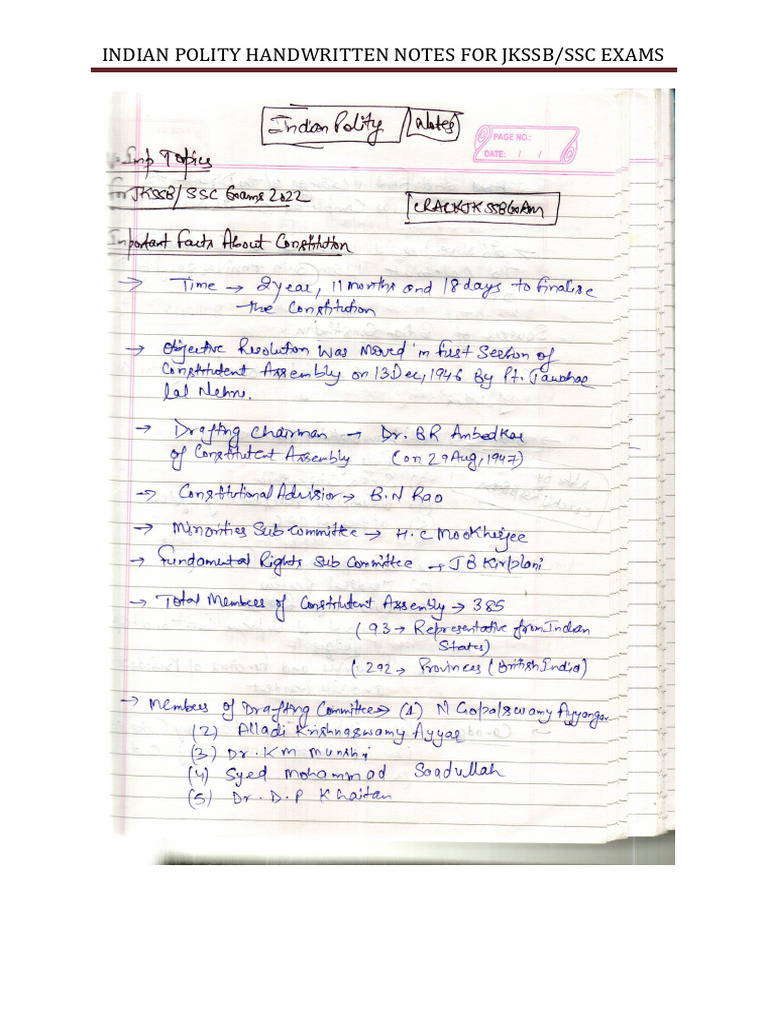 INDIAN POLITY HANDWRITTEN NOTES FOR JKSSB/SSC EXAMS
Indian Polity Notes
PAGE NO.:
DATE: / /
Imp Topics
For JKSSB/SSC Exams 2022
CRACKJKSSBEXAM
Important Facts About Constitution
→ Time → 2 year, 11 months and 18 days to finalise
the Constitution
→ Objective Resolution was Moved in first Section of
Constitutent Assembly on 13 Dec, 1946 By Pt. Jawahar
lal Nehru.
→ Drafting Chairman → Dr. BR Ambedkar
of Constitutent Assembly (on 29 Aug, 1947)
→ Constitutional Advisior → B.N Rao
→ Minorities Sub Committee → H.C Mookherjee
→ Fundamental Rights Sub Committee → JB Kirplani
→ Total Members of Constitutent Assembly → 385
(93 → Representative from Indian
States)
(292 → Provinces (British India)
→ Members of Drafting Committee → (1) N Gopalswamy Ayyangar
(2) Alladi Krishnaswamy Ayyar
(3) Dr. KM Munshi
(4) Syed Mohammad Saadullah
(5) Dr. D.P Khaitan